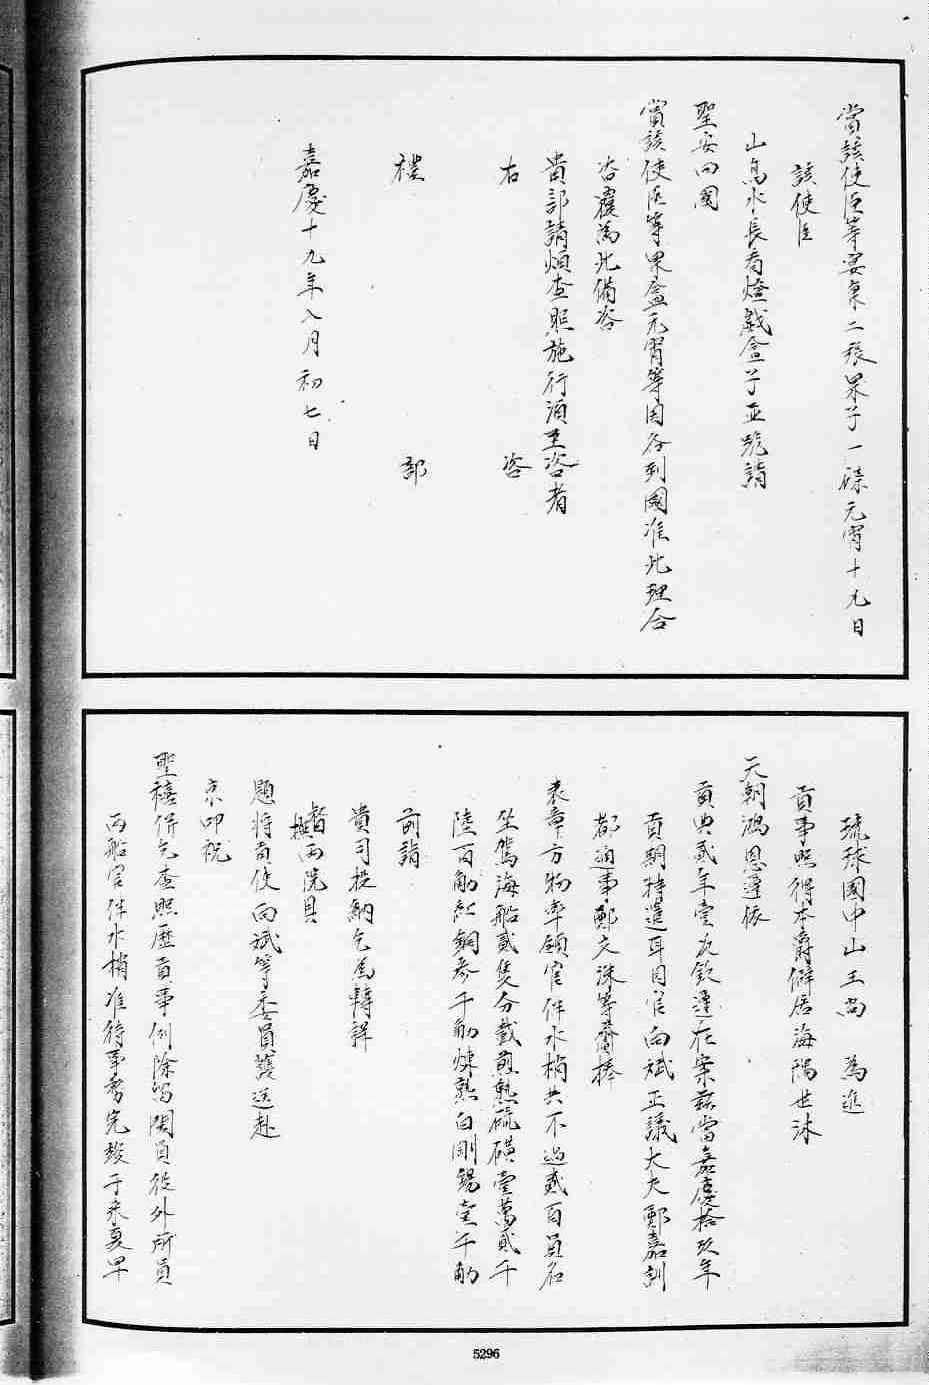 賞該使臣等宴桌二張果子一碟元宵十九日
該使臣
山高水長看燈戲盒子並跪請
聖安回國
賞該使臣等果盒元宵等因咨到國准此理合
咨覆為此備咨
貴部請煩查照施行須至咨者
右 咨
禮 部
嘉慶十九年八月初七日
琉球國中山王尚 為進
貢事照得本爵僻居海隅世沐
天朝鴻恩遵依
貢典貳年壹次欽遵在案茲當嘉慶拾玖年
貢期特遣耳目官向斌正議大夫鄭嘉訓
都通事鄭文洙等齎捧
表章方物率領官伴水梢共不過貳百員名
坐駕海船貳隻分載煎熟硫磺壹萬貳千
陸百觔紅銅參千觔煉熟白剛錫壹千觔
前詣
貴司投納乞為轉詳
督撫兩院具
題將貢使向斌等委員護送赴
京叩祝
聖禧併乞查照歷貢事例除留閩員役外所員
兩船官伴水梢准待事務完竣于來夏早
5296